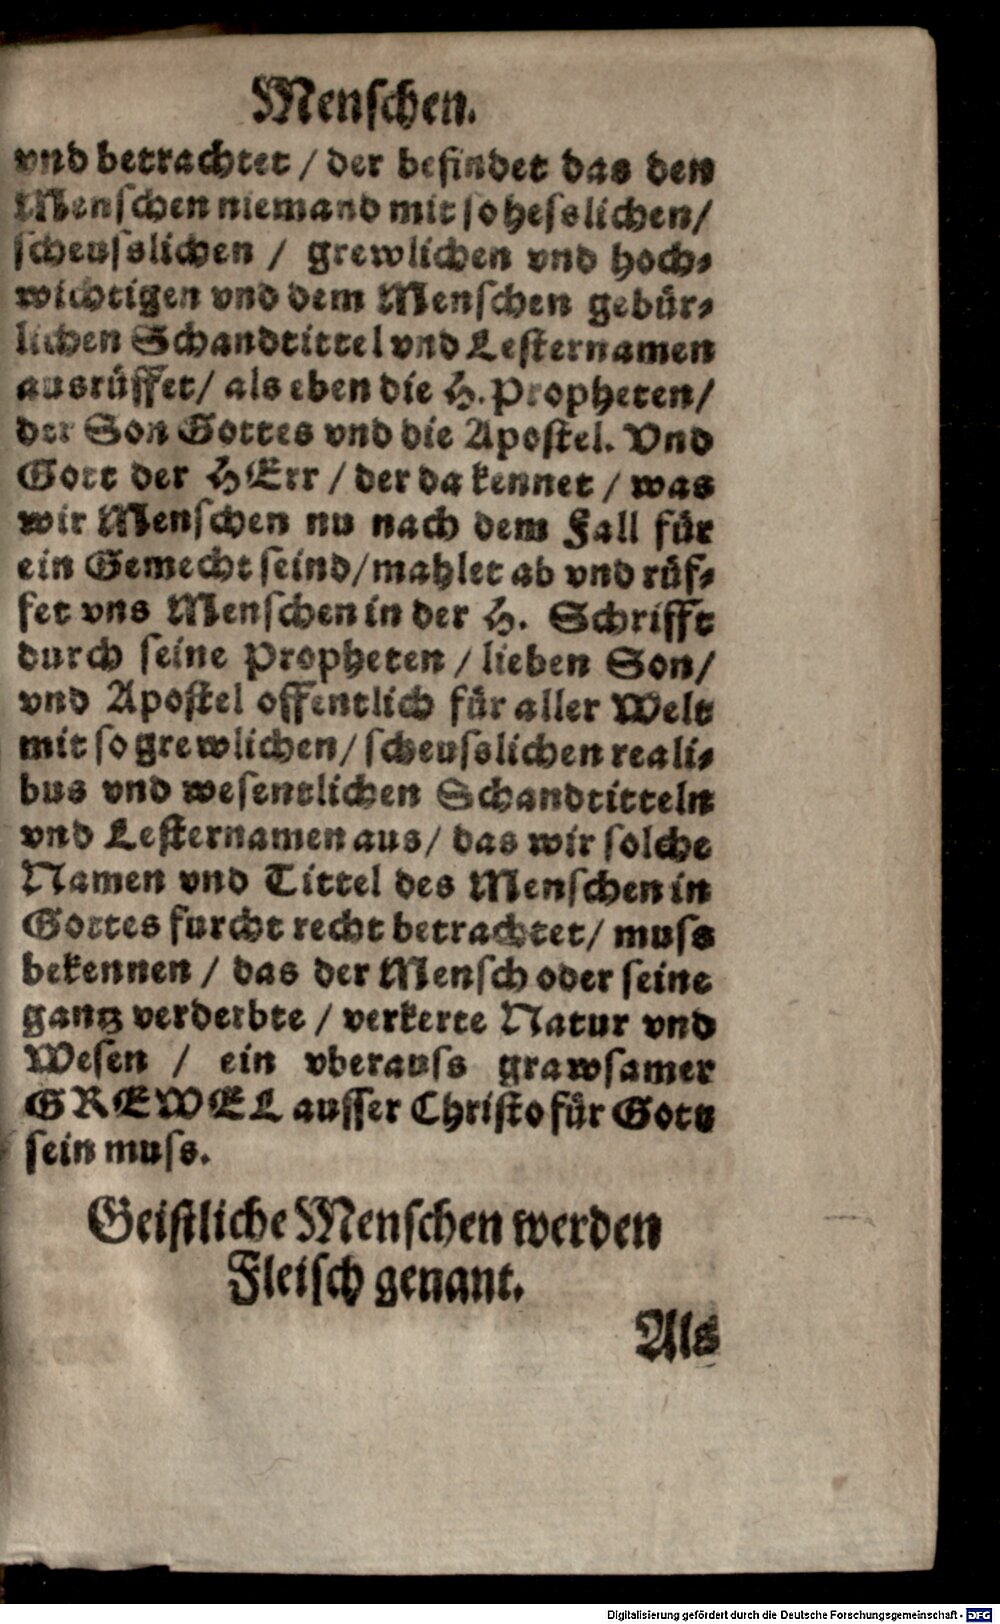 Menschen.
vnd betrachtet / der befindet das den
Menschen niemand mit so hesslichen/
scheusslichen / grewlichen vnd hoch-
wichtigen vnd dem Menschen gebür-
lichen Schandtittel vnd Lesternamen
ausrüffet/ als eben die H. Propheten/
der Son Gottes vnd die Apostel. Vnd
Gott der HErr / der da kennet / was
wir Menschen nu nach dem Fall für
ein Gemecht seind/mahlet ab vnd rüf-
fet vns Menschen in der H. Schrifft
durch seine Propheten / lieben Son/
vnd Apostel offentlich für aller Welt
mit so grewlichen/ scheusslichen reali-
bus vnd wesentlichen Schandtitteln
vnd Lesternamen aus/ das wir solche
Namen vnd Tittel des Menschen in
Gottes furcht recht betrachtet/ muss
bekennen / das der Mensch oder seine
gantz verderbte / verkerte Natur vnd
Wesen / ein vberauss grawsamer
GREWEL ausser Christo für Gott
sein muss.
Geistliche Menschen werden
Fleisch genant.
Als
Digitalisierung gefördert durch die Deutsche Forschungsgemeinschaft - DFG